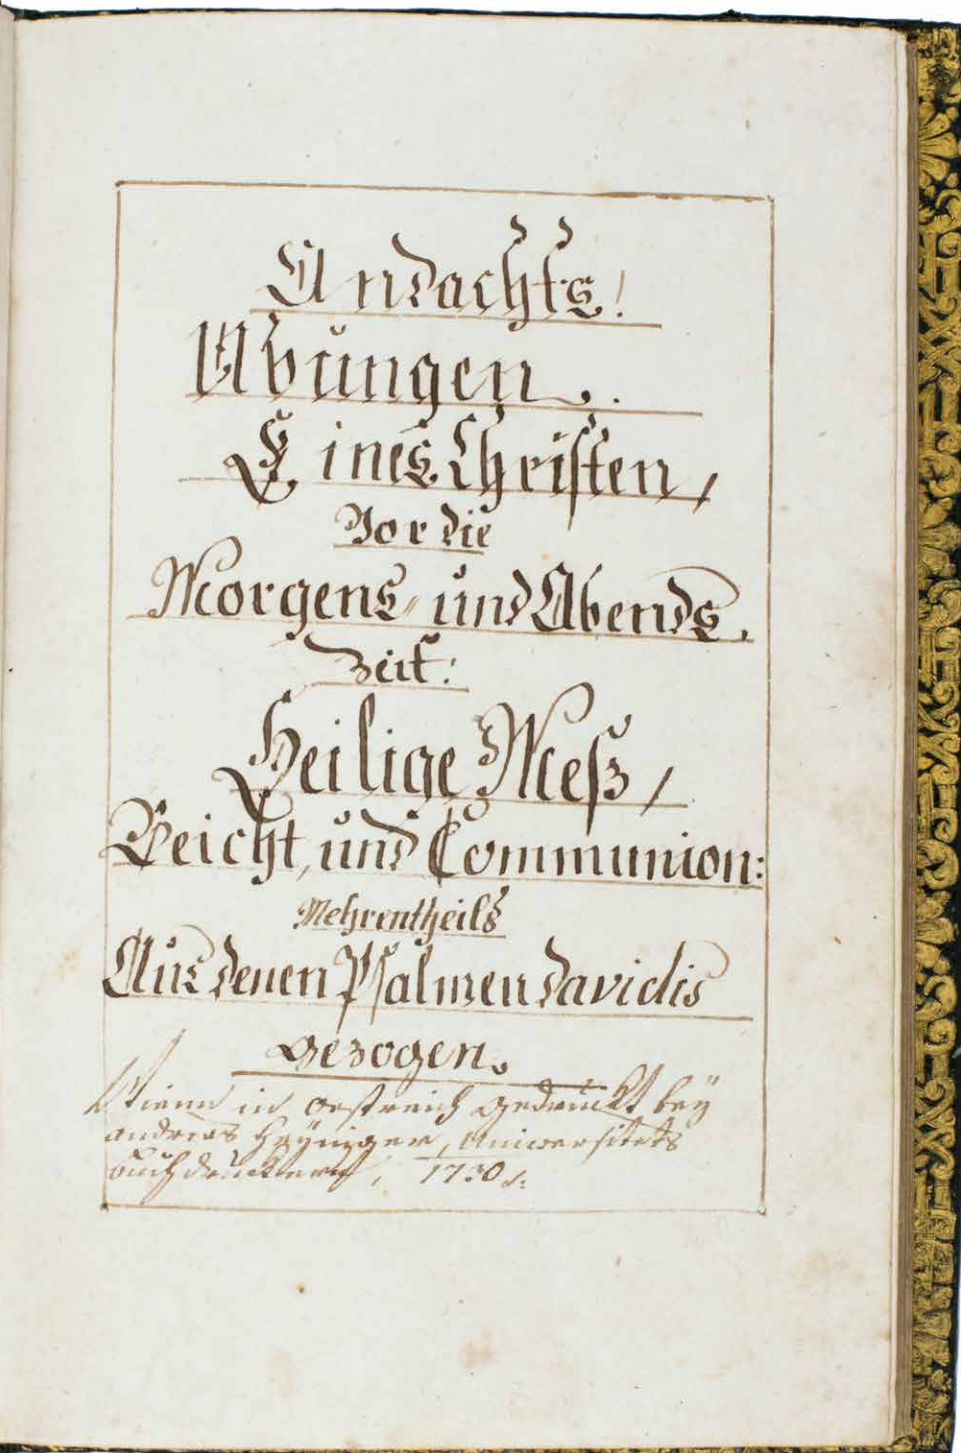 Andachts!
Übungen.
Eines Christen,
Vor die
Morgens- und Abends.
zeit:
Heilige Meß,
Beicht, und Communion:
Mehrentheils
Aus denen Psalmen Davidis
gezogen.
Wienn in Oestreich gedruckt beÿ
andreas Heÿniger, Universitets
buchdruckern, 1730